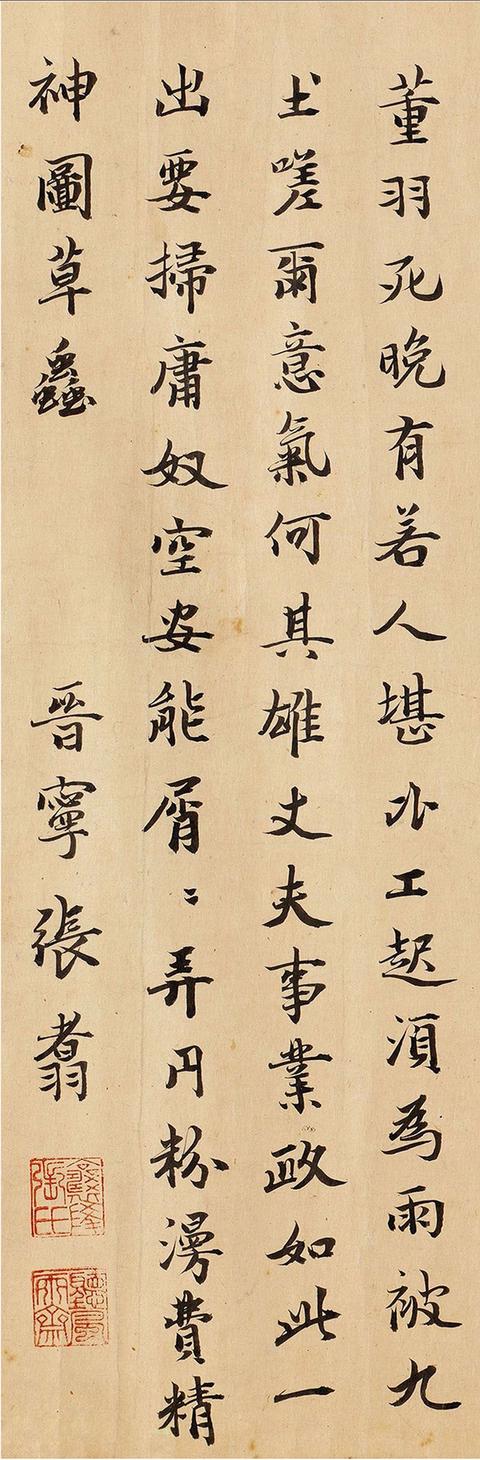 董羽死晚有若人堪工起須為雨被九
土嗟爾意氣何其雄丈夫事業政如此一
出要掃庸奴空安能屑〻弄丹粉漫費精
神圖草蟲　晉寧張翥